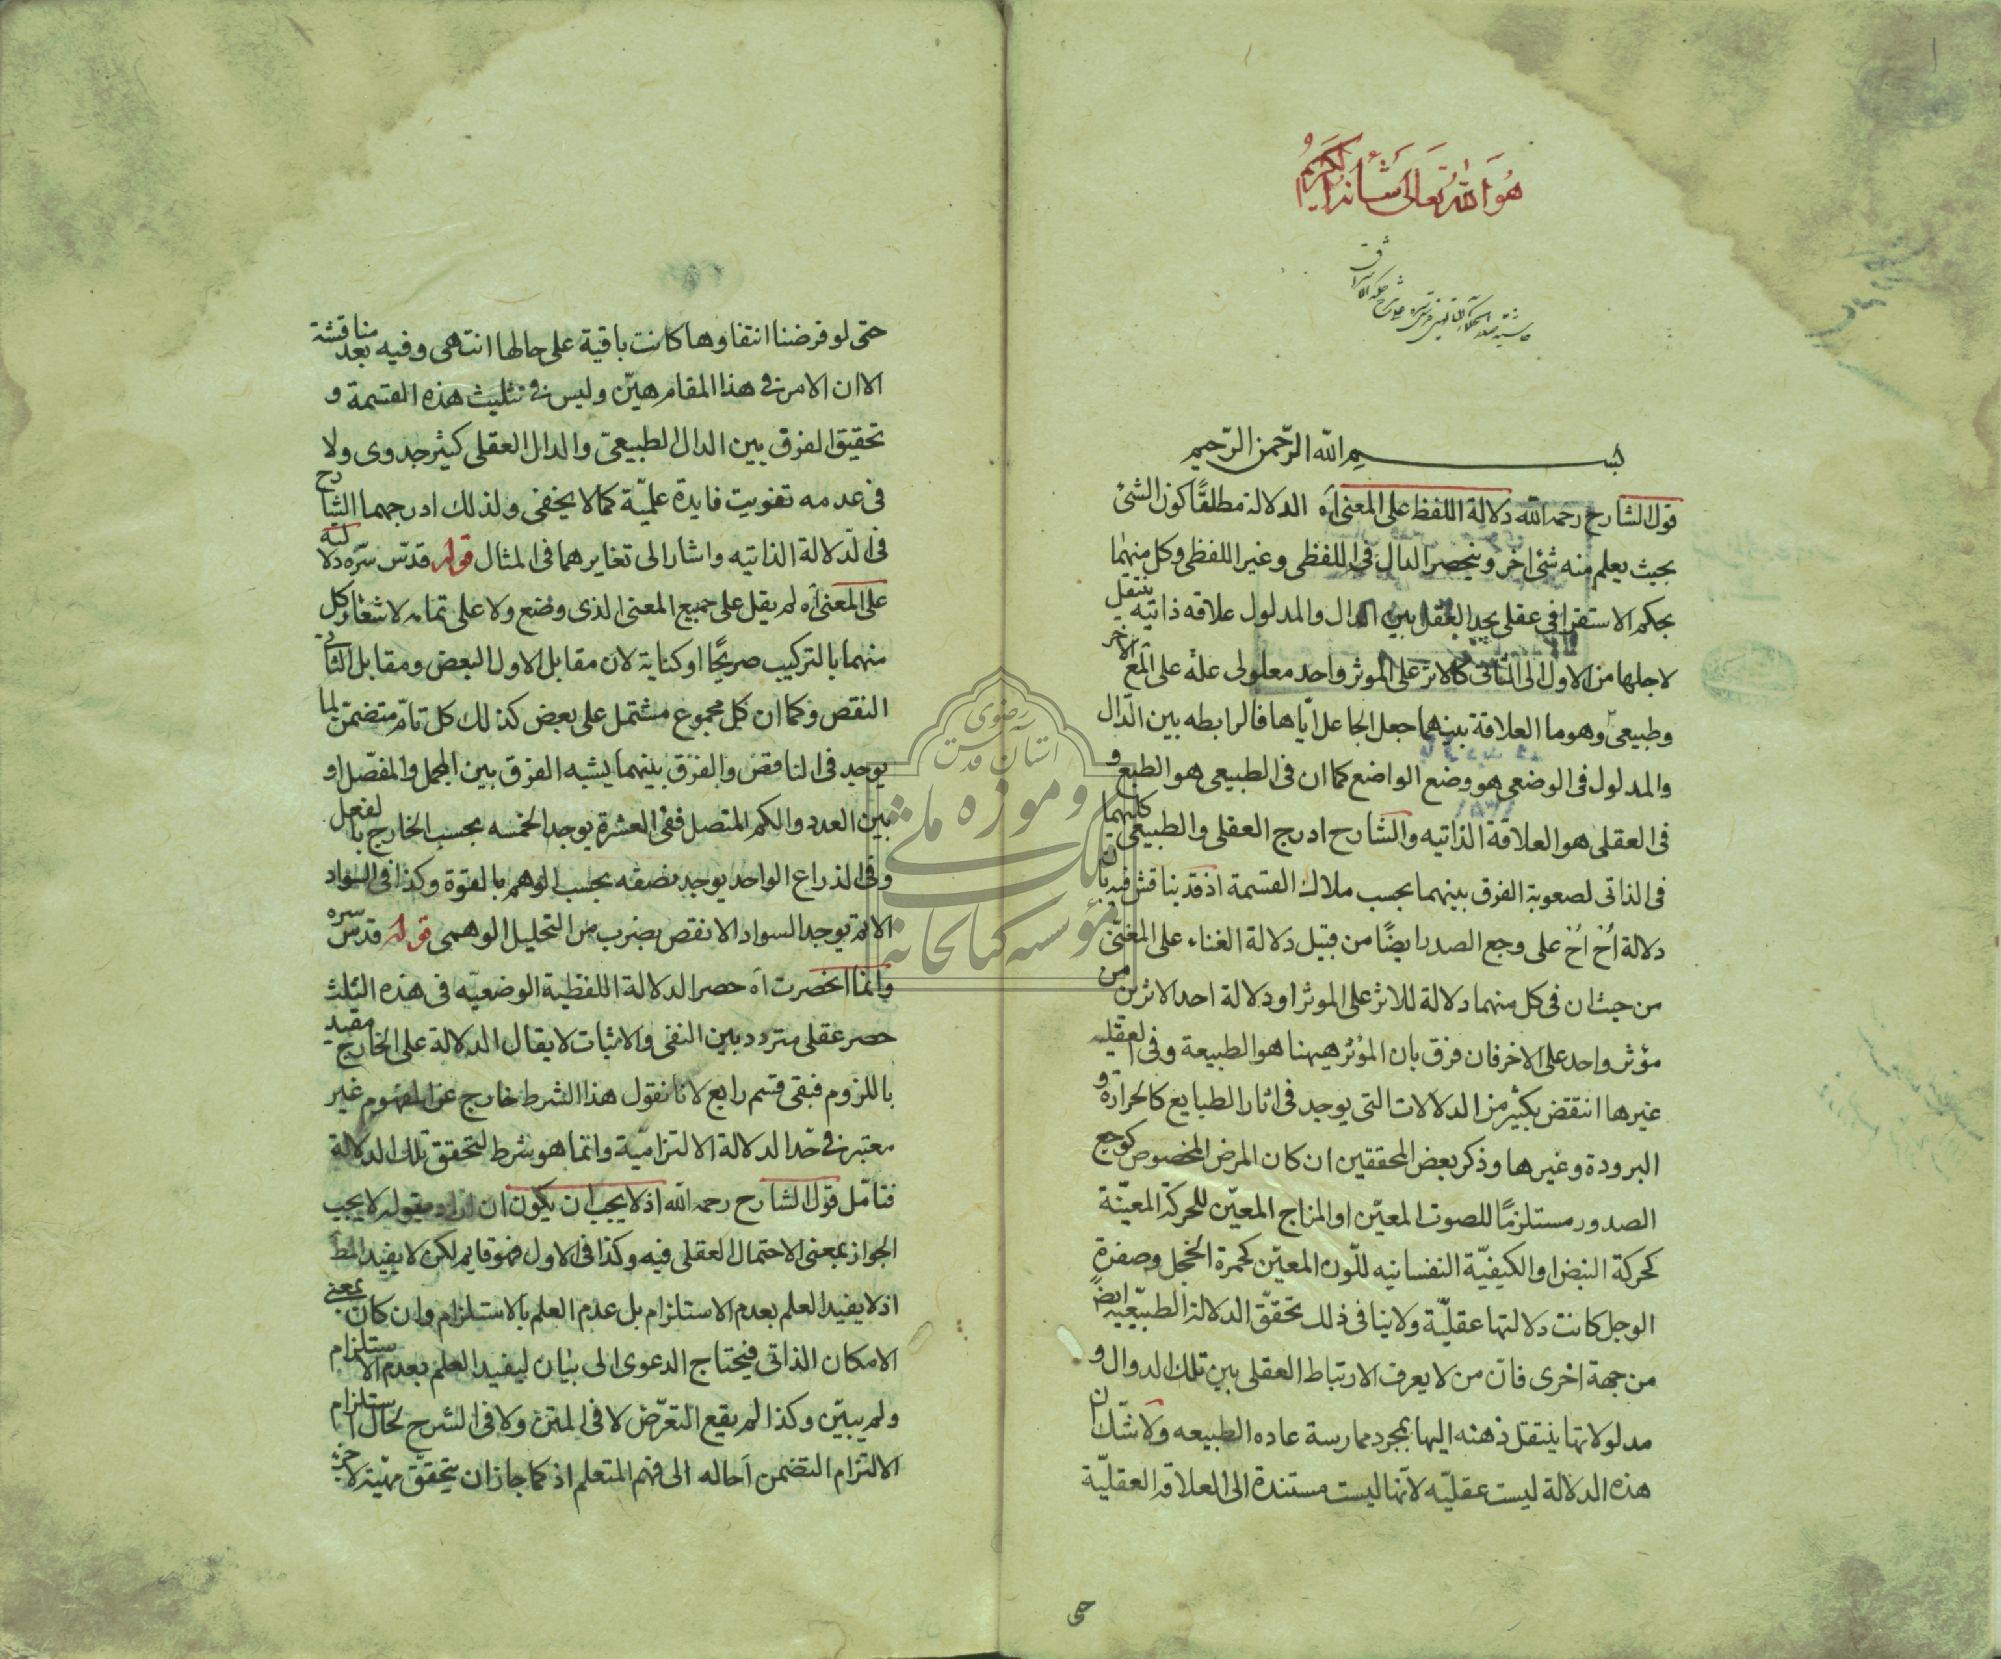 هو الله تعالى شأنه الكريم
حاشية صدر الحكماء المتألهين قدس سره على شرح حكمة الاشراق
بسم الله الرحمن الرحيم
قول الشارح رحمه الله دلالة اللفظ على المعنى اه الدلالة مطلقًا كون الشئ
بحيث يعلم منه شئ اخر وينحصر الدال فى اللفظى وغير اللفظى وكل منهما
بحكم الاستقرا فى عقلى يجد العقل بين الدال والمدلول علاقه ذاتيه ينتقل
لاجلها من الاول الى الثانى كالاثر على الموثر واحد معلولى علة على الاخر
وطبيعى وهو ما العلاقة بينهما جعل الجاعل اياها فالرابطه بين الدال
والمدلول فى الوضعى هو وضع الواضع كما ان فى الطبيعى هو الطبع و
فى العقلى هو العلاقة الذاتيه والشارح ادرج العقلى والطبيعى كليهما
فى الذاتى لصعوبة الفرق بينهما بحسب ملاك القسمة اذ قد يناقش فيه بان
دلالة اُخ اُخ على وجع الصدر ايضًا من قبيل دلالة الغناء على المغنّى
من حيث ان فى كل منهما دلالة للاثر على الموثر او دلالة احد الاثرين من
مؤثر واحد على الاخر فان فرق بان المؤثر هيهنا هو الطبيعة وفى العقليه
غيرها انتقض بكثير من الدلالات التى يوجد فى اثار الطبايع كالحرارة و
البرودة وغيرها وذكر بعض المحققين ان كان المرض المخصوص كوجع
الصدور مستلزمًا للصوت المعيّن او المزاج المعيّن للحركة المعيّنة
كحركة النبض او الكيفيّة النفسانيه للّون المعيّن كحمرة الخجل وصفرة
الوجل كانت دلالتها عقليّة ولا ينافى ذلك تحقّق الدلالة الطبيّعيّه ايضً
من جهة اخرى فان من لا يعرف الارتباط العقلى بين تلك الدوال و
مدلولاتها ينتقل ذهنه اليها بمجرد ممارسة عاده الطبيعه ولا شك ان
هذه الدلالة ليست عقليّه لانها ليست مستندة الى العلاقه العقليّة
حتى
حتى لو فرضنا انتفاوها كانت باقية على حالها انتهى وفيه بعد مناقشة
الا ان الامر فى هذا المقام هيّن وليس فى تثليث هذه القسمة و
تحقيق الفرق بين الدال الطبيعىّ والدال العقلى كثير جدوى ولا
فى عدمه تفويت فايدة علميّة كما لا يخفى ولذلك ادرجهما الشارح
فى الدلالة الذاتيه واشار الى تغايرهما فى المثال قوله قدّس سرّه دلالته
على المعنى اه لم يقل على جميع المعنى الذى وضع ولا على تمامه لاشعار كل
منهما بالتركيب صريحًا او كناية لان مقابل الاول البعض ومقابل الثانى
النقص وكما ان كل مجموع مشتمل على بعض كذلك كل تامّ متضمّن لما
يوجد فى الناقص والفرق بينهما يشبه الفرق بين المجمل والمفصّل او
بين العدد والكم المتصل ففى العشرة يوجد الخمسه بحسب الخارج بالفعل
وفى الذراع الواحد يوجد نصفه بحسب الوهم بالقوة وكذا فى السواد
الاتم يوجد السواد الانقص بضرب من التحليل الوهمى قوله قدّس سره
وانما انحصرت اه حصر الدلالة اللفظية الوضعيّه فى هذه الثلث
حصر عقلى متردد بين النفى والاثبات لا يقال الدلالة على الخارج مقيد
باللزوم فبقى قسم رابع لانا نقول هذا الشرط خارج عن المفهوم غير
معتبر فى حدّ الدلالة الالتزاميّة وانما هو شرط لتحقق تلك الدلالة
فتامّل قول الشارح رحمه الله اذ لا يجب ان يكون ان اراد بقوله لا يجب
الجواز بمعنى الاحتمال العقلى فيه وكذا فى الاول فهو قايم لكن لا يفيد المط
اذ لا يفيد العلم بعدم الاستلزام بل عدم العلم بالاستلزام وان كان بمعنى
الامكان الذاتى فيحتاج الدعوى الى بيان ليفيد العلم بعدم الاستلزام
ولم يبيّن وكذا لم يقع التعرّض لا فى المتن ولا فى الشرح لحال استلزام
الالتزام التضمن احاله الى فهم المتعلم اذ كما جاز ان يتحقق مهيّة لا جزء
آستان قدس رضوی
مؤسسه کتابخانه ها و موزه ملی ملک